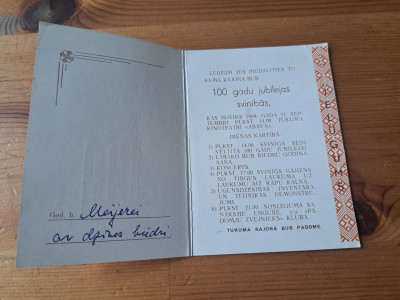 God. b. Meijerei
ar dzīves biedri
LŪDZAM JŪS PIEDALĪTIES TU-
KUMA RAJONA BUB
100 gadu jubilejas
svinībās,
KAS NOTIKS 1968. GADA 21. SEP-
TEMBRĪ PLKST. 14.00 TUKUMA
KINOTEĀTRĪ «ABAVA»
DIENAS KĀRTĪBĀ:
1) PLKST. 14.00 SVINĪGA SĒDE
VELTĪTA 100 GADU JUBILEJAI
2) LABĀKO BUB BIEDRU GODINĀ-
ŠANA.
3) KONCERTS.
4) PLKST. 17.00 SVINĪGS GĀJIENS
NO TIRGUS LAUKUMA UZ
LAUKUMU AIZ RAPU KALNA.
5) UGUNSDZĒSĪBAS INVENTĀRA
UN TEHNIKAS DEMONSTRĒ-
JUMI.
6) PLKST. 21.00 NOSLĒGUMA SA-
NĀKSME ENGURĒ, z/a «PA-
DOMJU ZVEJNIEKS» KLUBĀ.
TUKUMA RAJONA BUB PADOME
IELŪGUMS